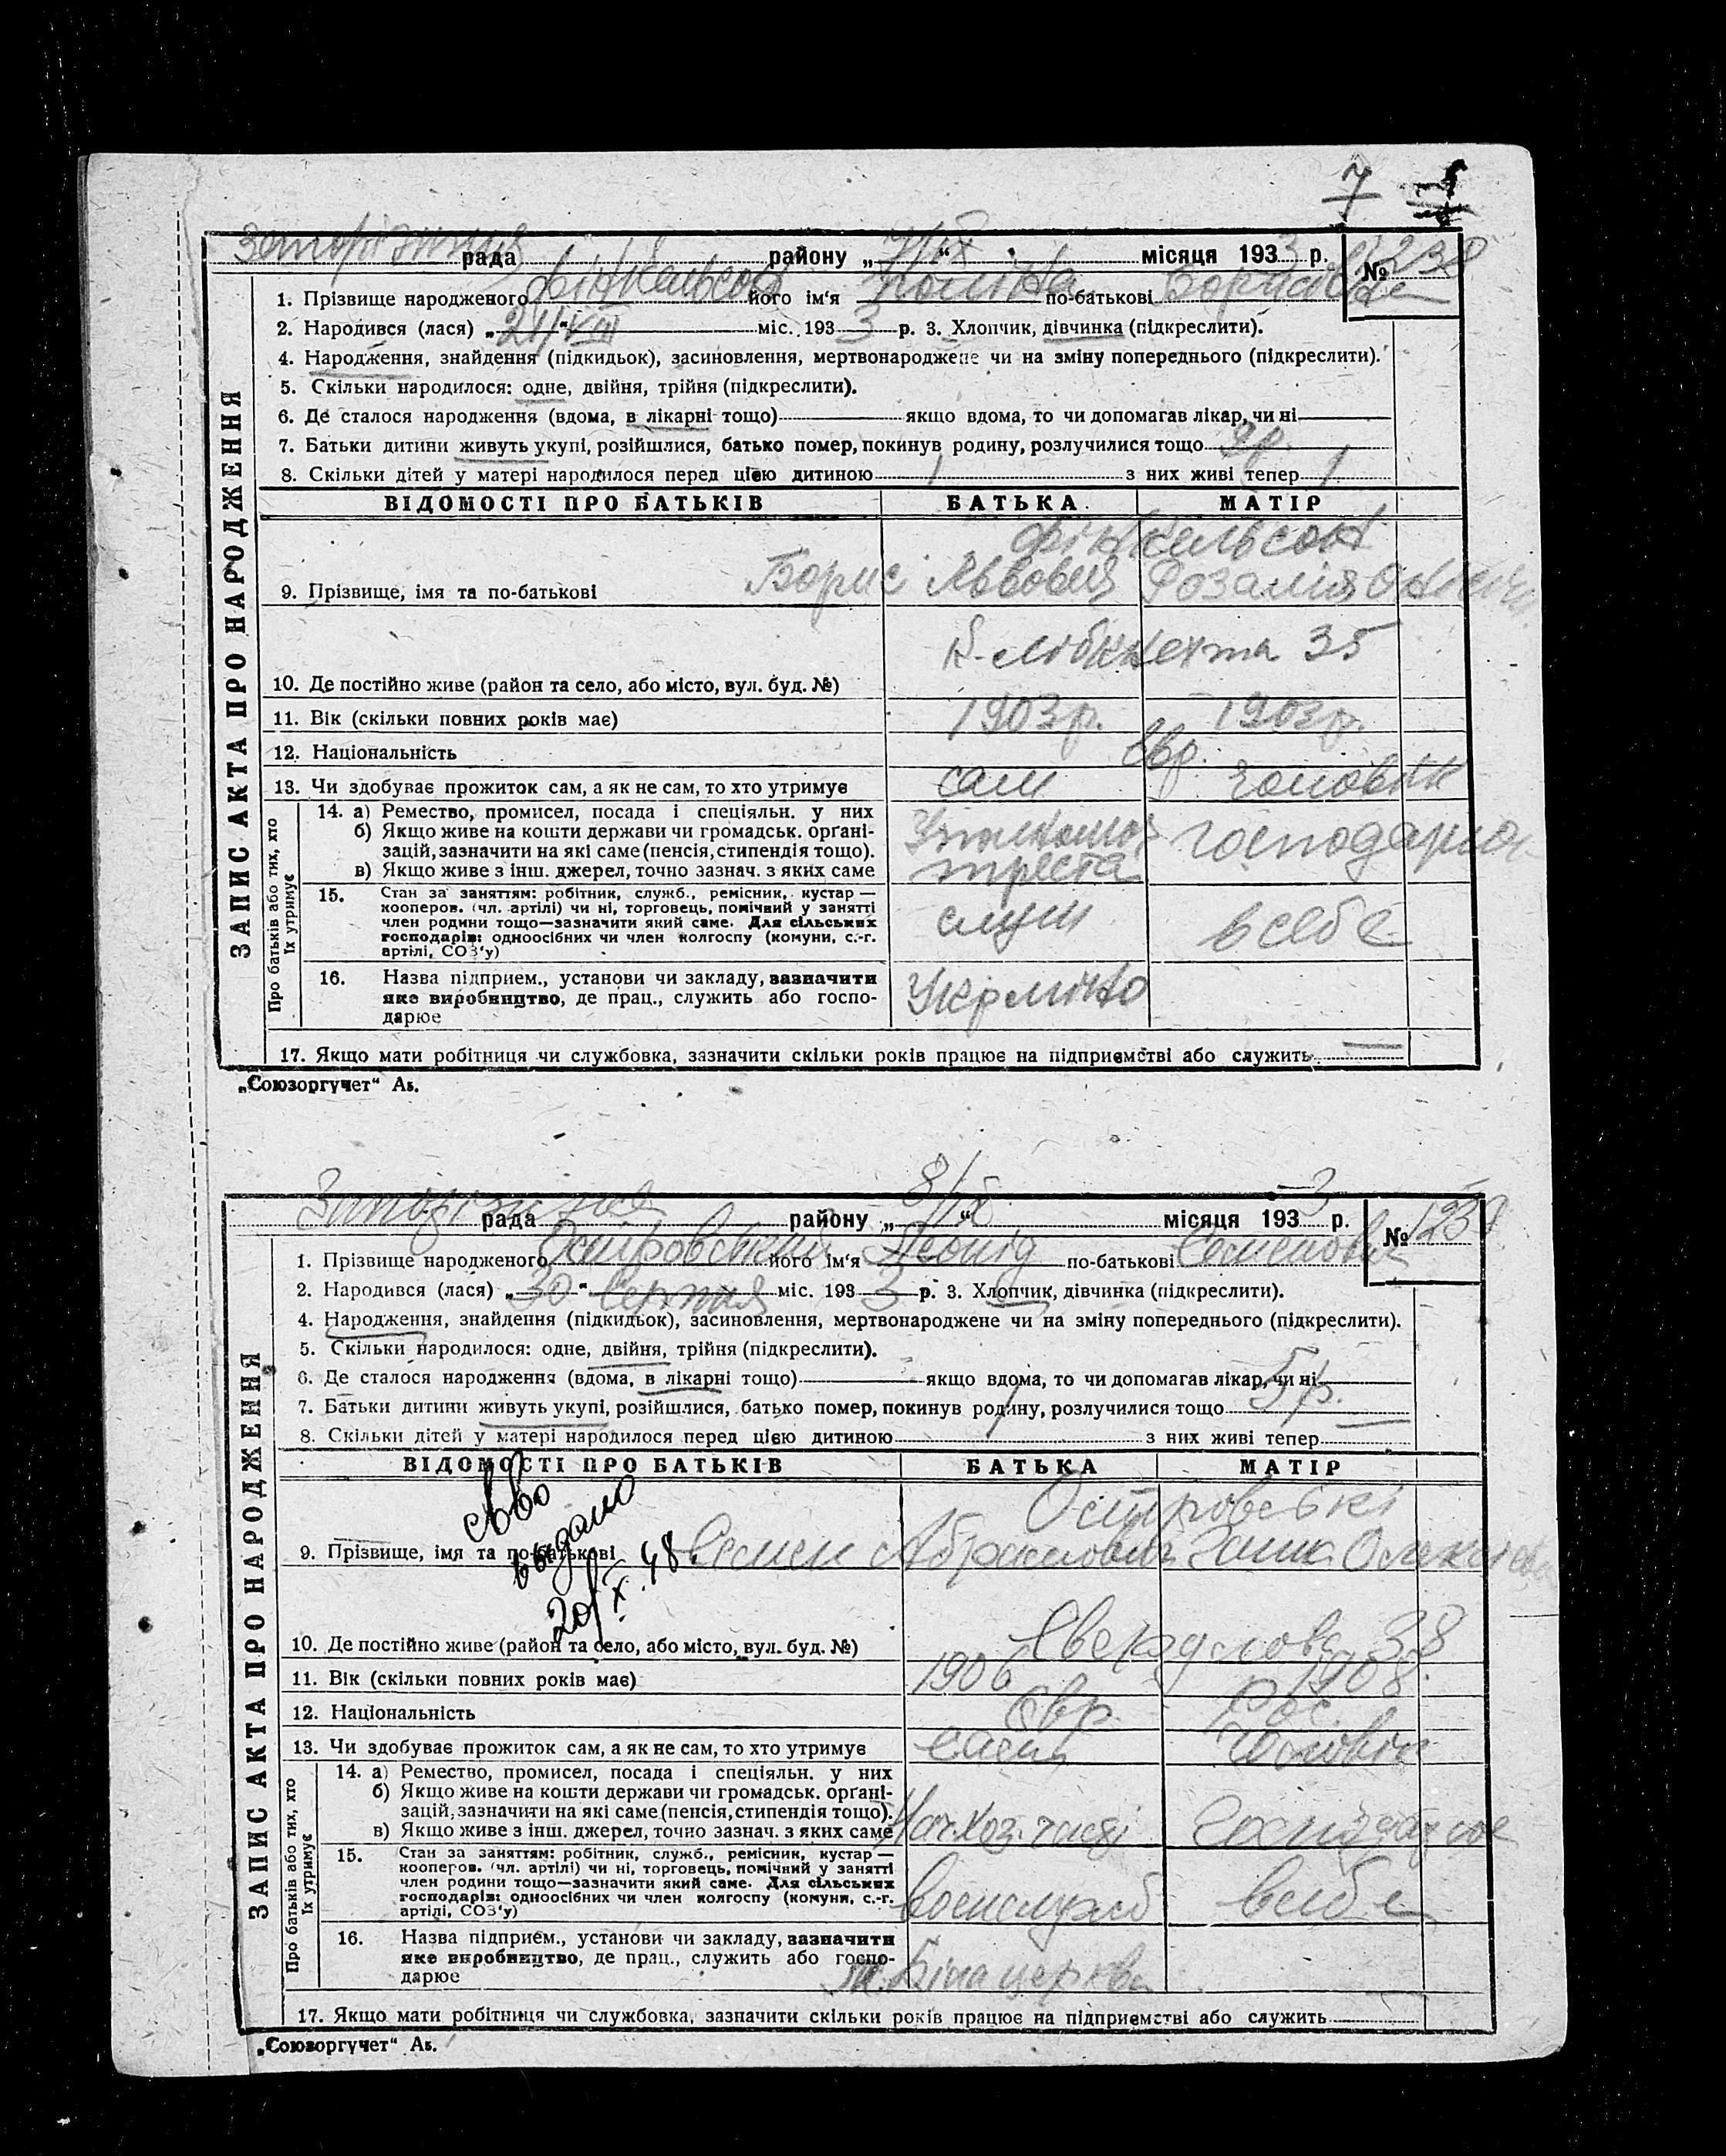 7
рада района „ 7/IX “ місяця 1933 р. № 1238
1. Прізвище народженого Фінкельсон його ім'я Поліна по-батькові Борисівна
2. Народився (лася) „ 24/VIII “ міс. 1933 р. 3. Хлопчик, дівчинка (підкреслити).
4. Народження, знайдення (підкидьок), засиновлення, мертвонароджене чи на зміну попереднього (підкреслити).
5. Скільки народилося: одне, двійня, трійня (підкреслити).
6. Де сталося народження (вдома, в лікарні тощо) якщо вдома, то чи допомагав лікар, чи ні
7. Батьки дитини живуть укупі, розійшлися, батько помер, покинув родину, розлучилися тощо 9 р.
8. Скільки дітей у матері народилося перед цією дитиною 1 з них живі тепер 1
ЗАПИС АКТА ПРО НАРОДЖЕННЯ
ВІДОМОСТІ ПРО БАТЬКІВ БАТЬКА МАТІР
Фінкельсон
9. Прізвище, імя та по-батькові Борис Львович Розалія
К-Лібкнехта 35
10. Де постійно живе (район та село, або місто, вул. буд. №)
11. Вік (скільки повних років має) 1903 р. 1903 р.
12. Національність Євр.
13. Чи здобуває прожиток сам, а як не сам, то хто утримує сам чоловік
Про батьків або тих, хто їх утримує
14. а) Ремество, промисел, посада і спеціяльн. у них
б) Якщо живе на кошти держави чи громадськ. орґані-
зацій, зазначити на які саме (пенсія, стипендія тощо).
в) Якщо живе з інш. джерел, точно зазнач. з яких саме
треста
15. Стан за заняттям: робітник, служб., ремісник, кустар —
кооперов. (чл. артілі) чи ні, торговець, помічний у занятті
член родини тощо—зазначити який саме. Для сільських
господарів: одноосібних чи член колгоспу (комуни, с.-г.
артілі, СОЗ'у)
служ в себе
16. Назва підприєм., установи чи закладу, зазначити
яке виробництво, де прац., служить або госпо-
дарює
17. Якщо мати робітниця чи службовка, зазначити скільки років працює на підприємстві або служить
„Союзоргучет“ Аб.
рада району „ 8/IX “ місяця 1933 р. №
1. Прізвище народженого Островський його ім'я Леонід по-батькові Семенович
2. Народився (лася) „ 30 “ Серпня міс. 1933 р. 3. Хлопчик, дівчинка (підкреслити).
4. Народження, знайдення (підкидьок), засиновлення, мертвонароджене чи на зміну попереднього (підкреслити).
5. Скільки народилося: одне, двійня, трійня (підкреслити).
6. Де сталося народження (вдома, в лікарні тощо) якщо вдома, то чи допомагав лікар, чи ні
7. Батьки дитини живуть укупі, розійшлися, батько помер, покинув родину, розлучилися тощо 5 р.
8. Скільки дітей у матері народилося перед цією дитиною з них живі тепер
ЗАПИС АКТА ПРО НАРОДЖЕННЯ
ВІДОМОСТІ ПРО БАТЬКІВ БАТЬКА МАТІР
св-во
выдано
20/X.48.
Островські
9. Прізвище, імя та по-батькові Семен Абрамович
10. Де постійно живе (район та село, або місто, вул. буд. №) Свердлова 38
11. Вік (скільки повних років має) 1906 1908
12. Національність Євр. Рос.
13. Чи здобуває прожиток сам, а як не сам, то хто утримує чоловік
Про батьків або тих, хто їх утримує
14. а) Ремество, промисел, посада і спеціяльн. у них
б) Якщо живе на кошти держави чи громадськ. орґані-
зацій, зазначити на які саме (пенсія, стипендія тощо).
в) Якщо живе з інш. джерел, точно зазнач. з яких саме Нач. хоз.
15. Стан за заняттям: робітник, служб., ремісник, кустар —
кооперов. (чл. артілі) чи ні, торговець, помічний у занятті
член родини тощо—зазначити який саме. Для сільських
господарів: одноосібних чи член колгоспу (комуни, с.-г.
артілі, СОЗ'у)
воєнслужб в себе
16. Назва підприєм., установи чи закладу, зазначити
яке виробництво, де прац., служить або госпо-
дарює
м. Біла церква
17. Якщо мати робітниця чи службовка, зазначити скільки років працює на підприємстві або служить
„Союзоргучет“ Аб.